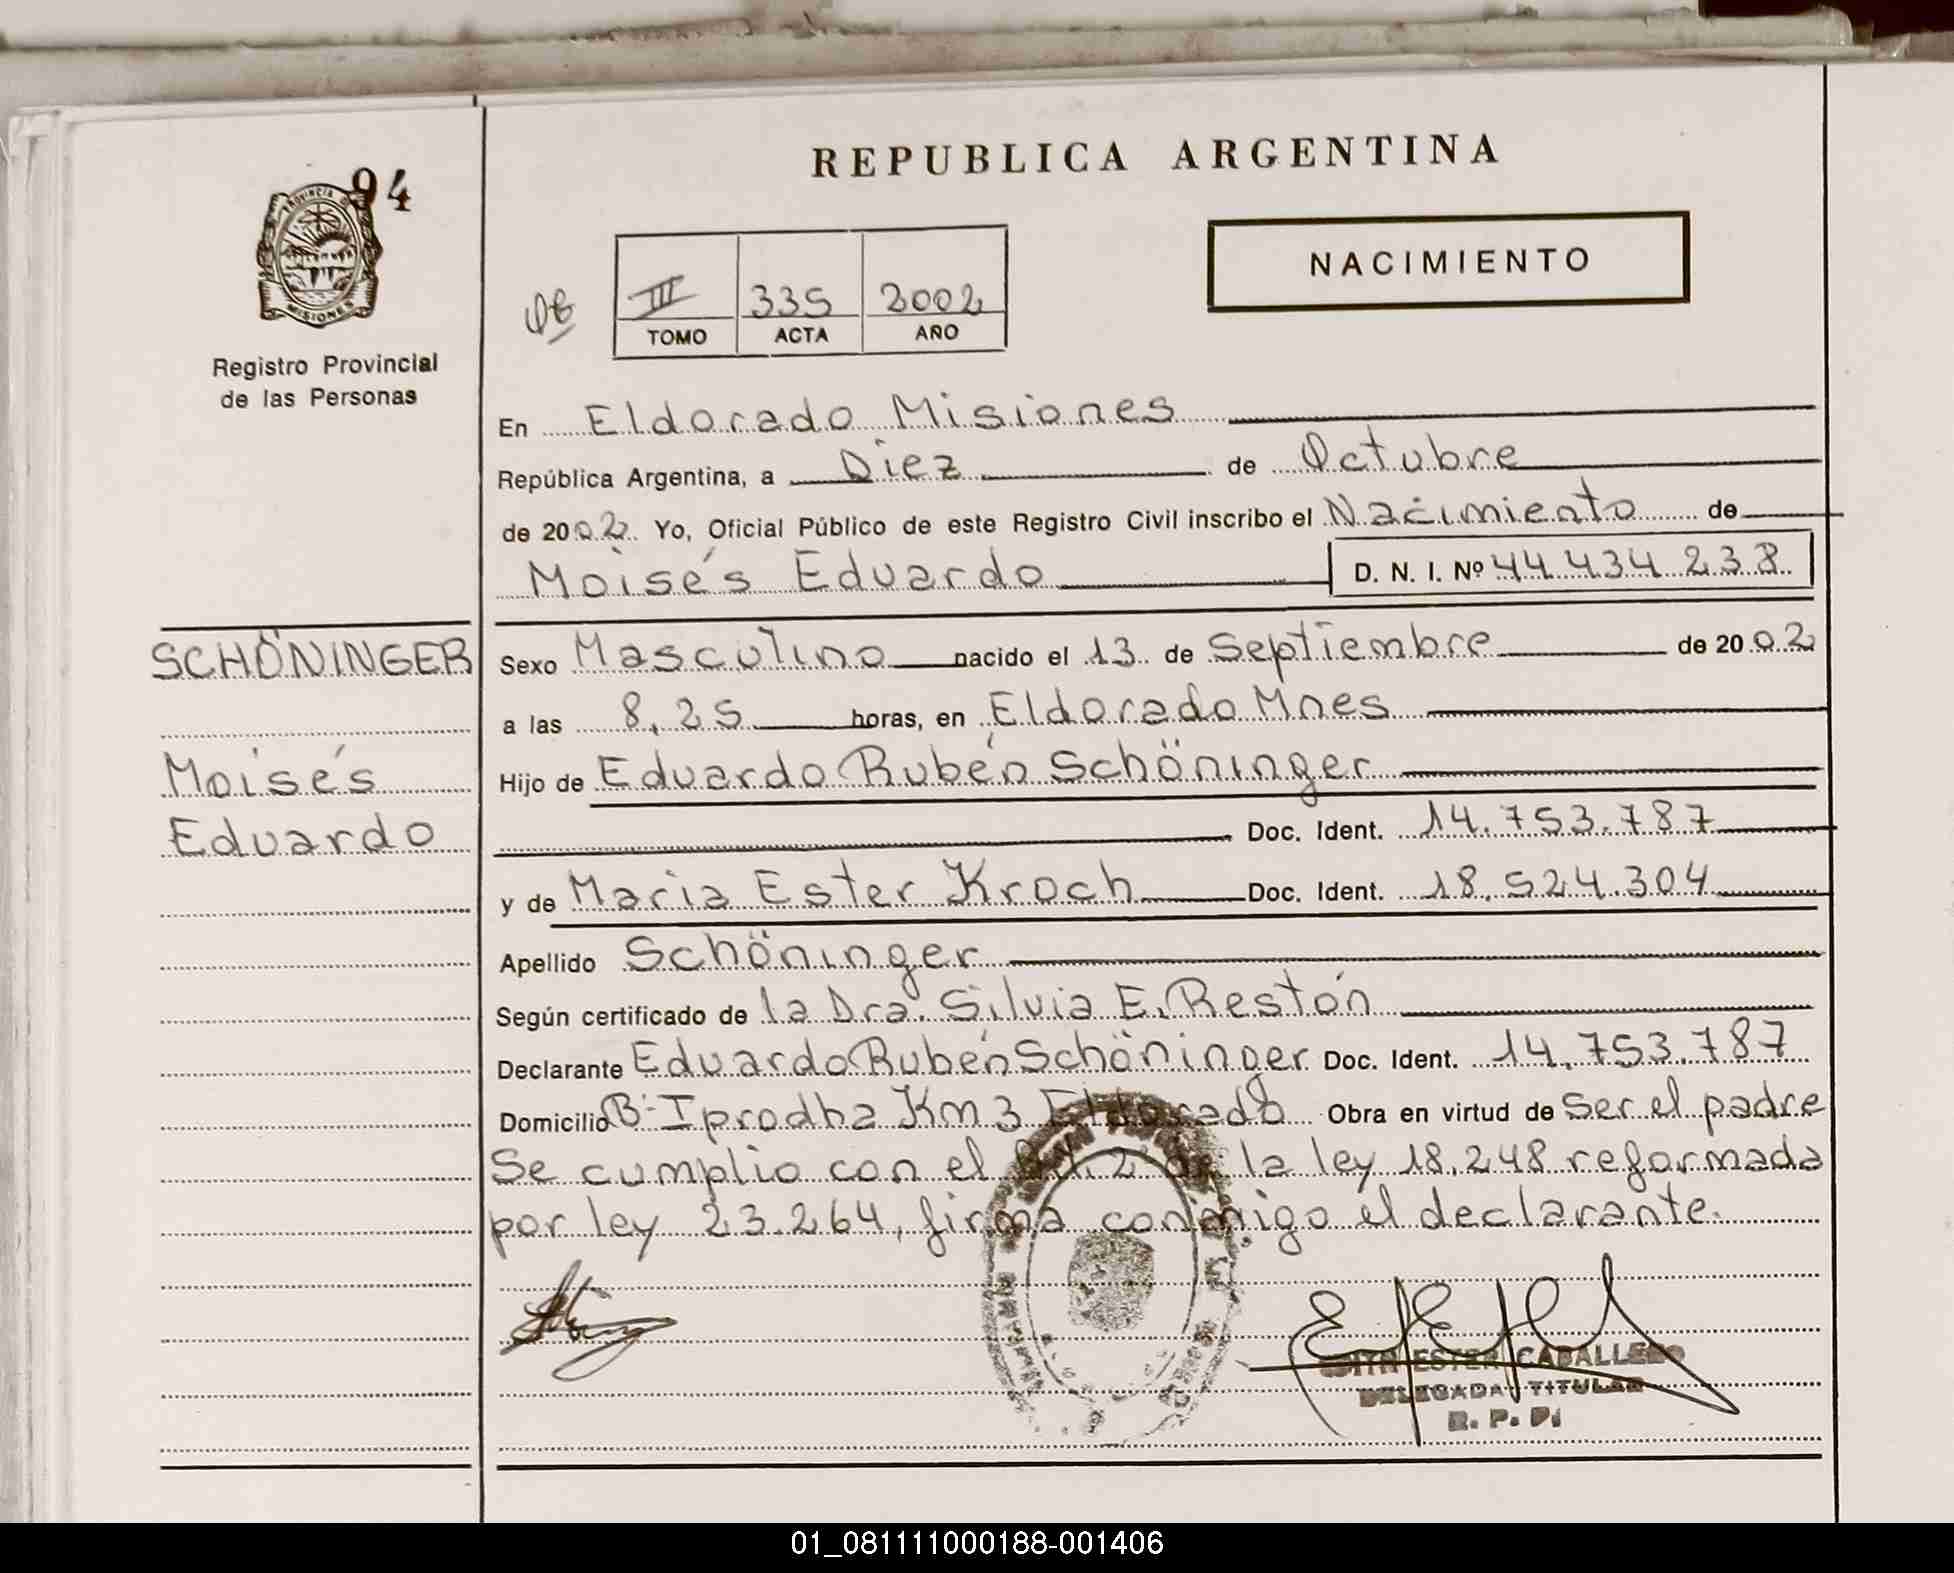 REPUBLICA ARGENTINA
94
PROVINCIA DE
MISIONES
Registro Provincial
de las Personas
NACIMIENTO
III 335 2002
TOMO ACTA AÑO
En Eldorado Misiones
República Argentina, a Diez de Octubre
de 2002. Yo, Oficial Público de este Registro Civil inscribo el Nacimiento de
Moisés Eduardo D. N. I. Nº 44.434.238
SCHÖNINGER
Moisés
Eduardo
Sexo Masculino nacido el 13 de Septiembre de 2002
a las 8,25 horas, en Eldorado Mnes
Hijo de Eduardo Rubén Schöninger
Doc. Ident. 14.753.787
y de Maria Ester Kroch Doc. Ident. 18.524.304
Apellido Schöninger
Según certificado de la Dra. Silvia E. Restón
Declarante Eduardo Rubén Schöninger Doc. Ident. 14.753.787
Domicilio Bº Iprodha Km 3 Eldorado Obra en virtud de Ser el padre
Se cumplio con el Art. 2 de la ley 18.248 reformada
por ley 23.264, firma conmigo el declarante.
EDITH ESTER CABALLERO
DELEGADA TITULAR
R. P. P.
01_081111000188-001406